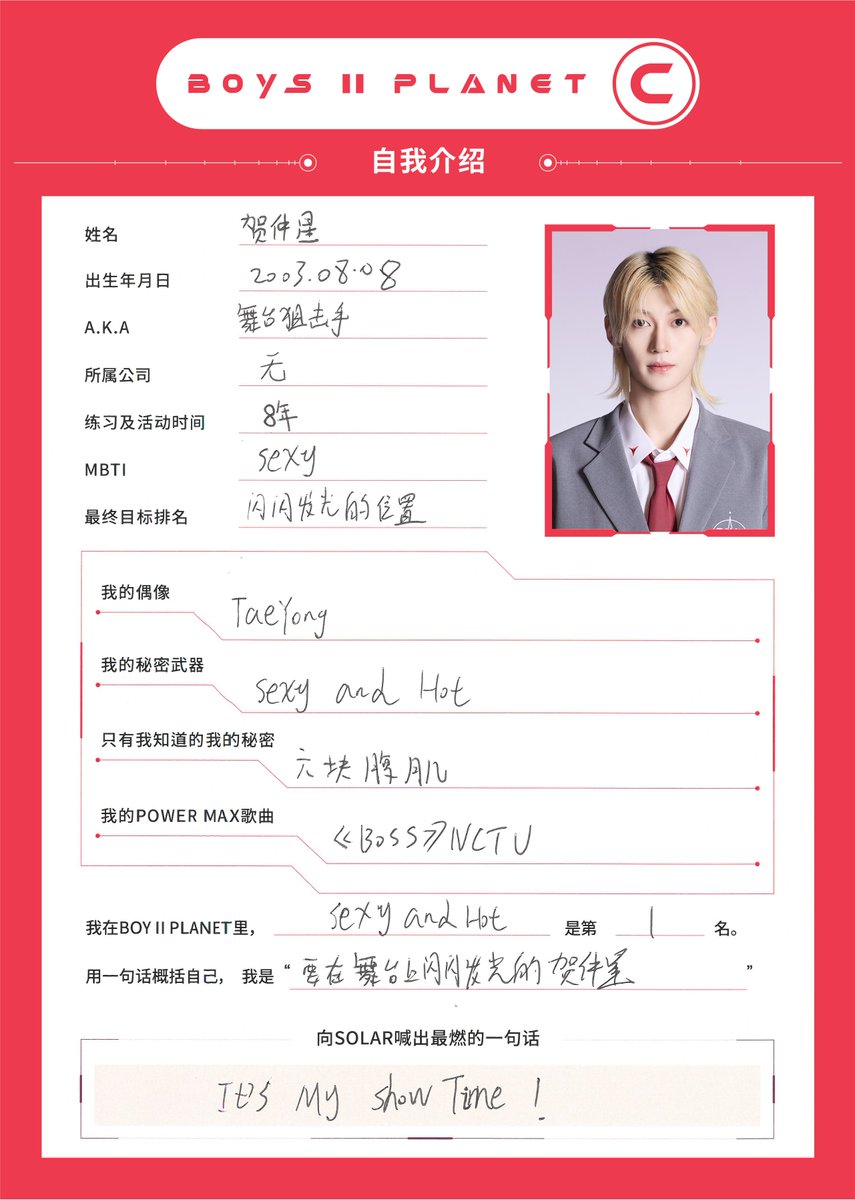 BOYS II PLANET C
自我介绍
姓名 贺件星
出生年月日 2003.08.08
A.K.A 舞台狙击手
所属公司 无
练习及活动时间 8年
MBTI sexy
最终目标排名 闪闪发光的位置
我的偶像 TaeYong
我的秘密武器 sexy and Hot
只有我知道的我的秘密 六块腹肌
我的POWER MAX歌曲 《BOSS》NCT U
我在BOY II PLANET里, sexy and Hot 是第 1 名。
用一句话概括自己, 我是 “要在舞台上闪闪发光的贺件星”
向SOLAR喊出最燃的一句话
It's My show Time!